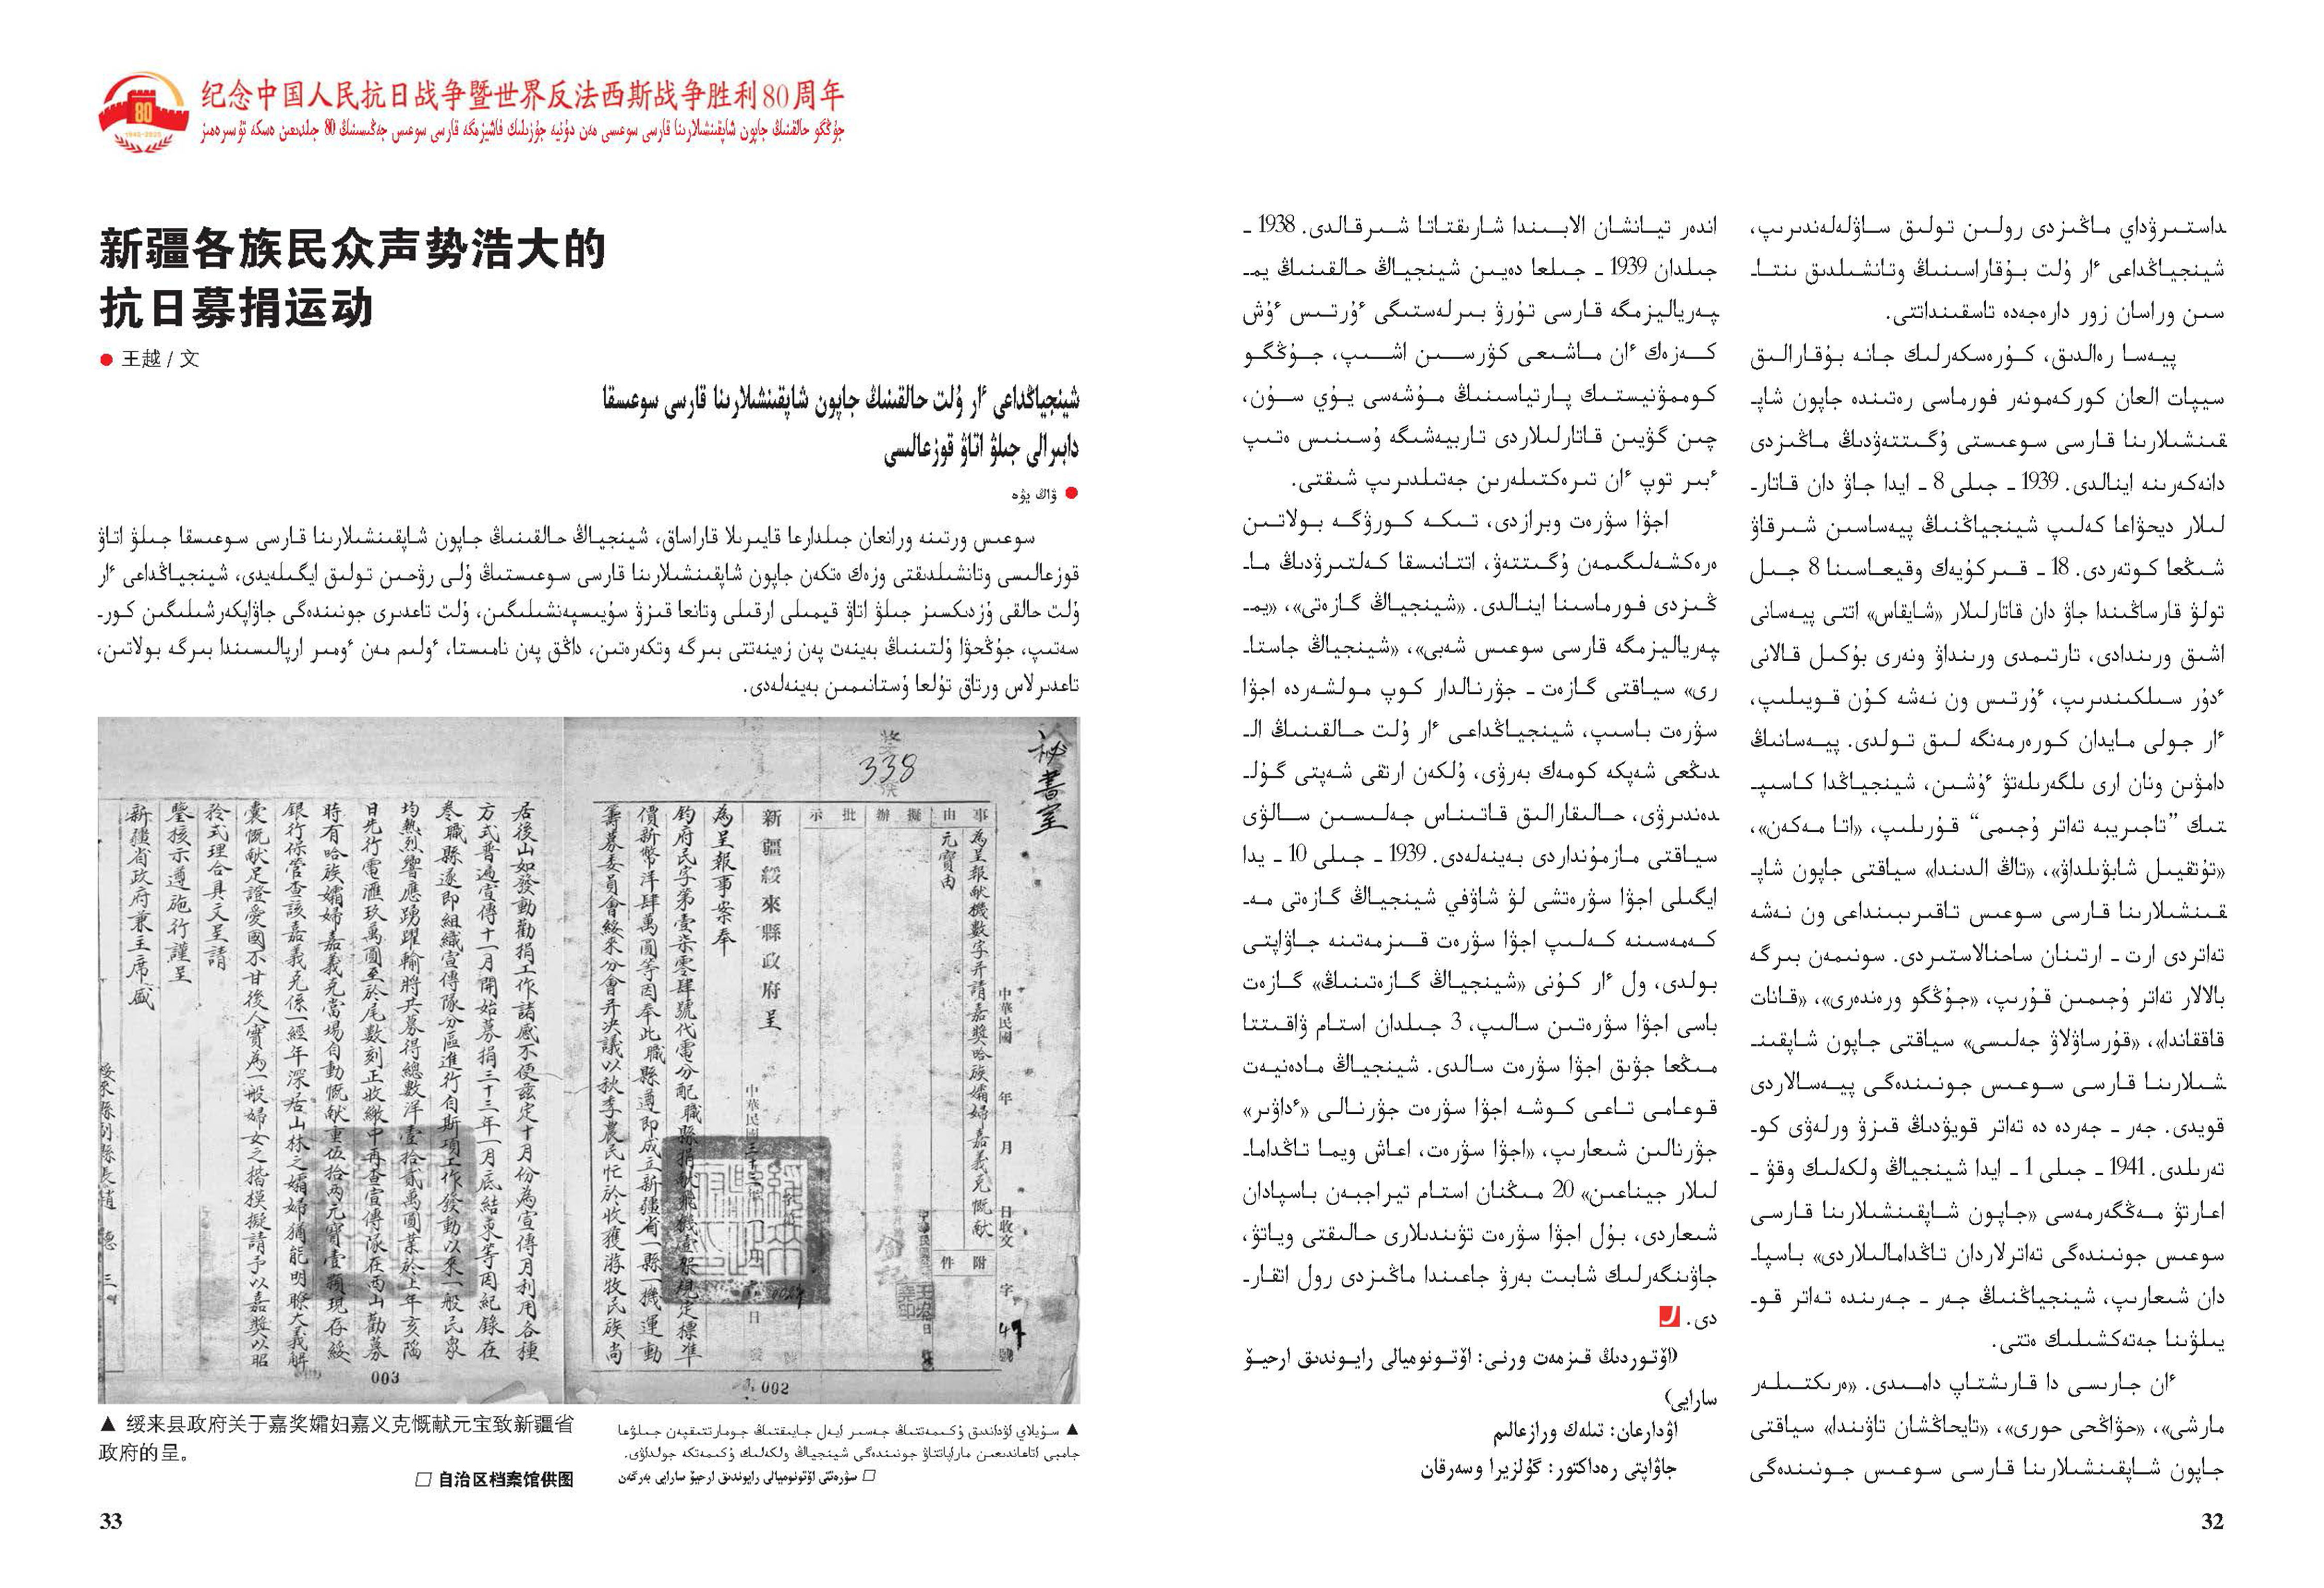 داستىرۋداي ماڭىزدى رولىن تولىق ساۋلەلەندىرىپ،
شينجياڭداعى ٴار ۇلت بۇقاراسىنىڭ وتانشىلدىق ىنتا-
سىن وراسان زور دارەجەدە تاسقىنداتتى.
پيەسا رەالدىق، كۇرەسكەرلىك جانە بۇقارالىق
سيپات العان كوركەمونەر فورماسى رەتىندە جاپون شاپ-
قىنشىلارىنا قارسى سوعىستى ۇگىتتەۋدىڭ ماڭىزدى
دانەكەرىنە اينالدى. 1939 - جىلى 8 - ايدا جاۋ دان قاتار-
لىلار ديحۋاعا كەلىپ شينجياڭنىڭ پيەساسىن شىرقاۋ
شىڭعا كوتەردى. 18 - قىركۇيەك وقيعاسىنا 8 جىل
تولۋ قارساڭىندا جاۋ دان قاتارلىلار «شايقاس» اتتى پيەسانى
اشىق ورىندادى، تارتىمدى ورىنداۋ ونەرى بۇكىل قالانى
ٴدۇر سىلكىندىرىپ، ٴۇرتىس ون نەشە كۇن قويىلىپ،
ٴار جولى مايدان كورەرمەنگە لىق تولدى. پيەسانىڭ
دامۋىن ونان ارى ىلگەرىلەتۋ ٴۇشىن، شينجياڭدا كاسىپ-
تىك ”تاجىريبە تەاتر ۇجىمى“ قۇرىلىپ، «اتا مەكەن»،
«تۇتقيىل شابۋىلداۋ»، «تاڭ الدىندا» سياقتى جاپون شاپ-
قىنشىلارىنا قارسى سوعىس تاقىرىبىنداعى ون نەشە
تەاتردى ارت - ارتىنان ساحنالاستىردى. سونىمەن بىرگە
بالالار تەاتر ۇجىمىن قۇرىپ، «جۇڭگو ورەندەرى»، «قانات
قاققاندا»، «قۇرساۋلاۋ جەلىسى» سياقتى جاپون شاپقىن-
شىلارىنا قارسى سوعىس جونىندەگى پيەسالاردى
قويدى. جەر - جەردە دە تەاتر قويۋدىڭ قىزۋ ورلەۋى كو-
تەرىلدى. 1941 - جىلى 1 - ايدا شينجياڭ ولكەلىك وقۋ -
اعارتۋ مەڭگەرمەسى «جاپون شاپقىنشىلارىنا قارسى
سوعىس جونىندەگى تەاترلاردان تاڭدامالىلاردى» باسپا-
دان شىعارىپ، شينجياڭنىڭ جەر - جەرىندە تەاتر قو-
يىلۋىنا جەتەكشىلىك ەتتى.
ٴان جارىسى دا قارىشتاپ دامىدى. «ەرىكتىلەر
مارشى»، «حۋاڭحى حورى»، «تايحاڭشان تاۋىندا» سياقتى
جاپون شاپقىنشىلارىنا قارسى سوعىس جونىندەگى
اندەر تيانشان الابىندا شارىقتاتا شىرقالدى. 1938 -
جىلدان 1939 - جىلعا دەيىن شينجياڭ حالقىنىڭ يم-
پەرياليزمگە قارسى تۇرۋ بىرلەستىگى ٴۇرتىس ٴۇش
كەزەك ٴان ماشىعى كۋرسىن اشىپ، جۇڭگو
كوممۋنيستىك پارتياسىنىڭ مۇشەسى يۇي سۇن،
چىن گۋيىن قاتارلىلاردى تاربيەشىگە ۇسىنىس ەتىپ
ٴبىر توپ ٴان تىرەكتىلەرىن جەتىلدىرىپ شىقتى.
اجۋا سۋرەت وبرازدى، تىكە كورۋگە بولاتىن
ەرەكشەلىگىمەن ۇگىتتەۋ، اتتانىسقا كەلتىرۋدىڭ ما-
ڭىزدى فورماسىنا اينالدى. «شينجياڭ گازەتى»، «يم-
پەرياليزمگە قارسى سوعىس شەبى»، «شينجياڭ جاستا-
رى» سياقتى گازەت - جۋرنالدار كوپ مولشەردە اجۋا
سۋرەت باسىپ، شينجياڭداعى ٴار ۇلت حالقىنىڭ ال-
دىڭعى شەپكە كومەك بەرۋى، ۇلكەن ارتقى شەپتى گۇل-
دەندىرۋى، حالىقارالىق قاتىناس جەلىسىن سالۋى
سياقتى مازمۇنداردى بەينەلەدى. 1939 - جىلى 10 - يدا
ايگىلى اجۋا سۋرەتشى لۋ شاۋفي شينجياڭ گازەتى مە-
كەمەسىنە كەلىپ اجۋا سۋرەت قىزمەتىنە جاۋاپتى
بولدى، ول ٴار كۇنى «شينجياڭ گازەتىنىڭ» گازەت
باسى اجۋا سۋرەتىن سالىپ، 3 جىلدان استام ۋاقىتتا
مىڭعا جۋىق اجۋا سۋرەت سالدى. شينجياڭ مادەنيەت
قوعامى تاعى كوشە اجۋا سۋرەت جۋرنالى «ٴداۋىر»
جۋرنالىن شىعارىپ، «اجۋا سۋرەت، اعاش ويما تاڭداما-
لىلار جيناعىن» 20 مىڭنان استام تيراجبەن باسپادان
شىعاردى، بۇل اجۋا سۋرەت تۋىندىلارى حالىقتى وياتۋ،
جاۋىنگەرلىك شابىت بەرۋ جاعىندا ماڭىزدى رول اتقار-
دى.
(اۆتوردىڭ قىزمەت ورنى: اۆتونوميالى رايوندىق ارحيۆ
سارايى)
اۋدارعان: تىلەك ورازعالىم
جاۋاپتى رەداكتور: گۇلزيرا وسەرقان
32
80
1945-2025
纪念中国人民抗日战争暨世界反法西斯战争胜利80周年
جۇڭگو حالقىنىڭ جاپون شاپقىنشىلارىنا قارسى سوعىسى مەن دۇنيە جۇزىلىك فاشيزمگە قارسى سوعىس جەڭىسىنىڭ 80 جىلدىعىن ەسكە تۇسىرەمىز
新疆各族民众声势浩大的
抗日募捐运动
● 王越 / 文
شينجياڭداعى ٴار ۇلت حالقىنىڭ جاپون شاپقىنشىلارىنا قارسى سوعىسقا
دابىرالى جىلۋ اتاۋ قوزعالىسى
● ۋاڭ يۋە
سوعىس ورتىنە ورانعان جىلدارعا قايىرىلا قاراساق، شينجياڭ حالقىنىڭ جاپون شاپقىنشىلارىنا قارسى سوعىسقا جىلۋ اتاۋ
قوزعالىسى وتانشىلدىقتى وزەك ەتكەن جاپون شاپقىنشىلارىنا قارسى سوعىستىڭ ۇلى رۋحىن تولىق ايگىلەيدى، شينجياڭداعى ٴار
ۇلت حالقى ۇزدىكسىز جىلۋ اتاۋ قيمىلى ارقىلى وتانعا قىزۋ سۇيىسپەنشىلىگىن، ۇلت تاعدىرى جونىندەگى جاۋاپكەرشىلىگىن كور-
سەتىپ، جۇڭحۋا ۇلتىنىڭ بەينەت پەن زەينەتتى بىرگە وتكەرەتىن، داڭق پەن نامىستا، ٴولىم مەن ٴومىر ارپالىسىندا بىرگە بولاتىن،
تاعدىرلاس ورتاق تۇلعا ۇستانىمىن بەينەلەدى.
秘書室
338
事由
擬辦
批示
為呈報献機數字并請嘉獎哈族孀婦嘉義克慨献
元寶由
附件
中華民國 年 月 日收文 字 號
新疆綏來縣政府呈
為呈報事案奉
鈞府民字第壹柒零肆號代電分配職縣捐献飛機壹架規定標准
價新幣洋肆萬圓等因奉此職縣遵即成立新疆省一縣一機運動
籌募委員會綏來分會并決議以秋季農民忙於收獲游牧民族尚
002
居後山如發動勸捐工作諸感不便茲定十月份為宣傳月利用各種
方式普遍宣傳十一月開始募捐三十三年一月底結束等因紀錄在
卷職縣遂即組織宣傳隊分區進行自斯項工作發動以來一般民衆
均熱烈響應踴躍輸將共募得總數洋壹拾貳萬圓業於上年亥陷
日先行電滙玖萬圓至於尾數刻正收繳中再查宣傳隊在西山勸募
時有哈族孀婦嘉義克當場自動慨献重伍拾兩元寶壹顆現存綏
銀行保管查該嘉義克係一經年深居山林之孀婦猶能明瞭大義解
囊慨献足證愛國不甘後人實為一般婦女之楷模擬請予以嘉獎以昭
矜式理合具文呈請
鑒核示遵施行謹呈
新疆省政府兼主席盛
003
▲ 绥来县政府关于嘉奖孀妇嘉义克慨献元宝致新疆省
政府的呈。
□ 自治区档案馆供图
▲ سۇيلاي اۋداندىق ۇكىمەتتىڭ جەسىر ايەل جايىقتىڭ جومارتتىقپەن جىلۋعا
جامبى اتاعاندىعىن ماراپاتتاۋ جونىندەگى شينجياڭ ولكەلىك ۇكىمەتكە جولداۋى.
□ سۋرەتتى اۆتونوميالى رايوندىق ارحيۆ سارايى بەرگەن
33